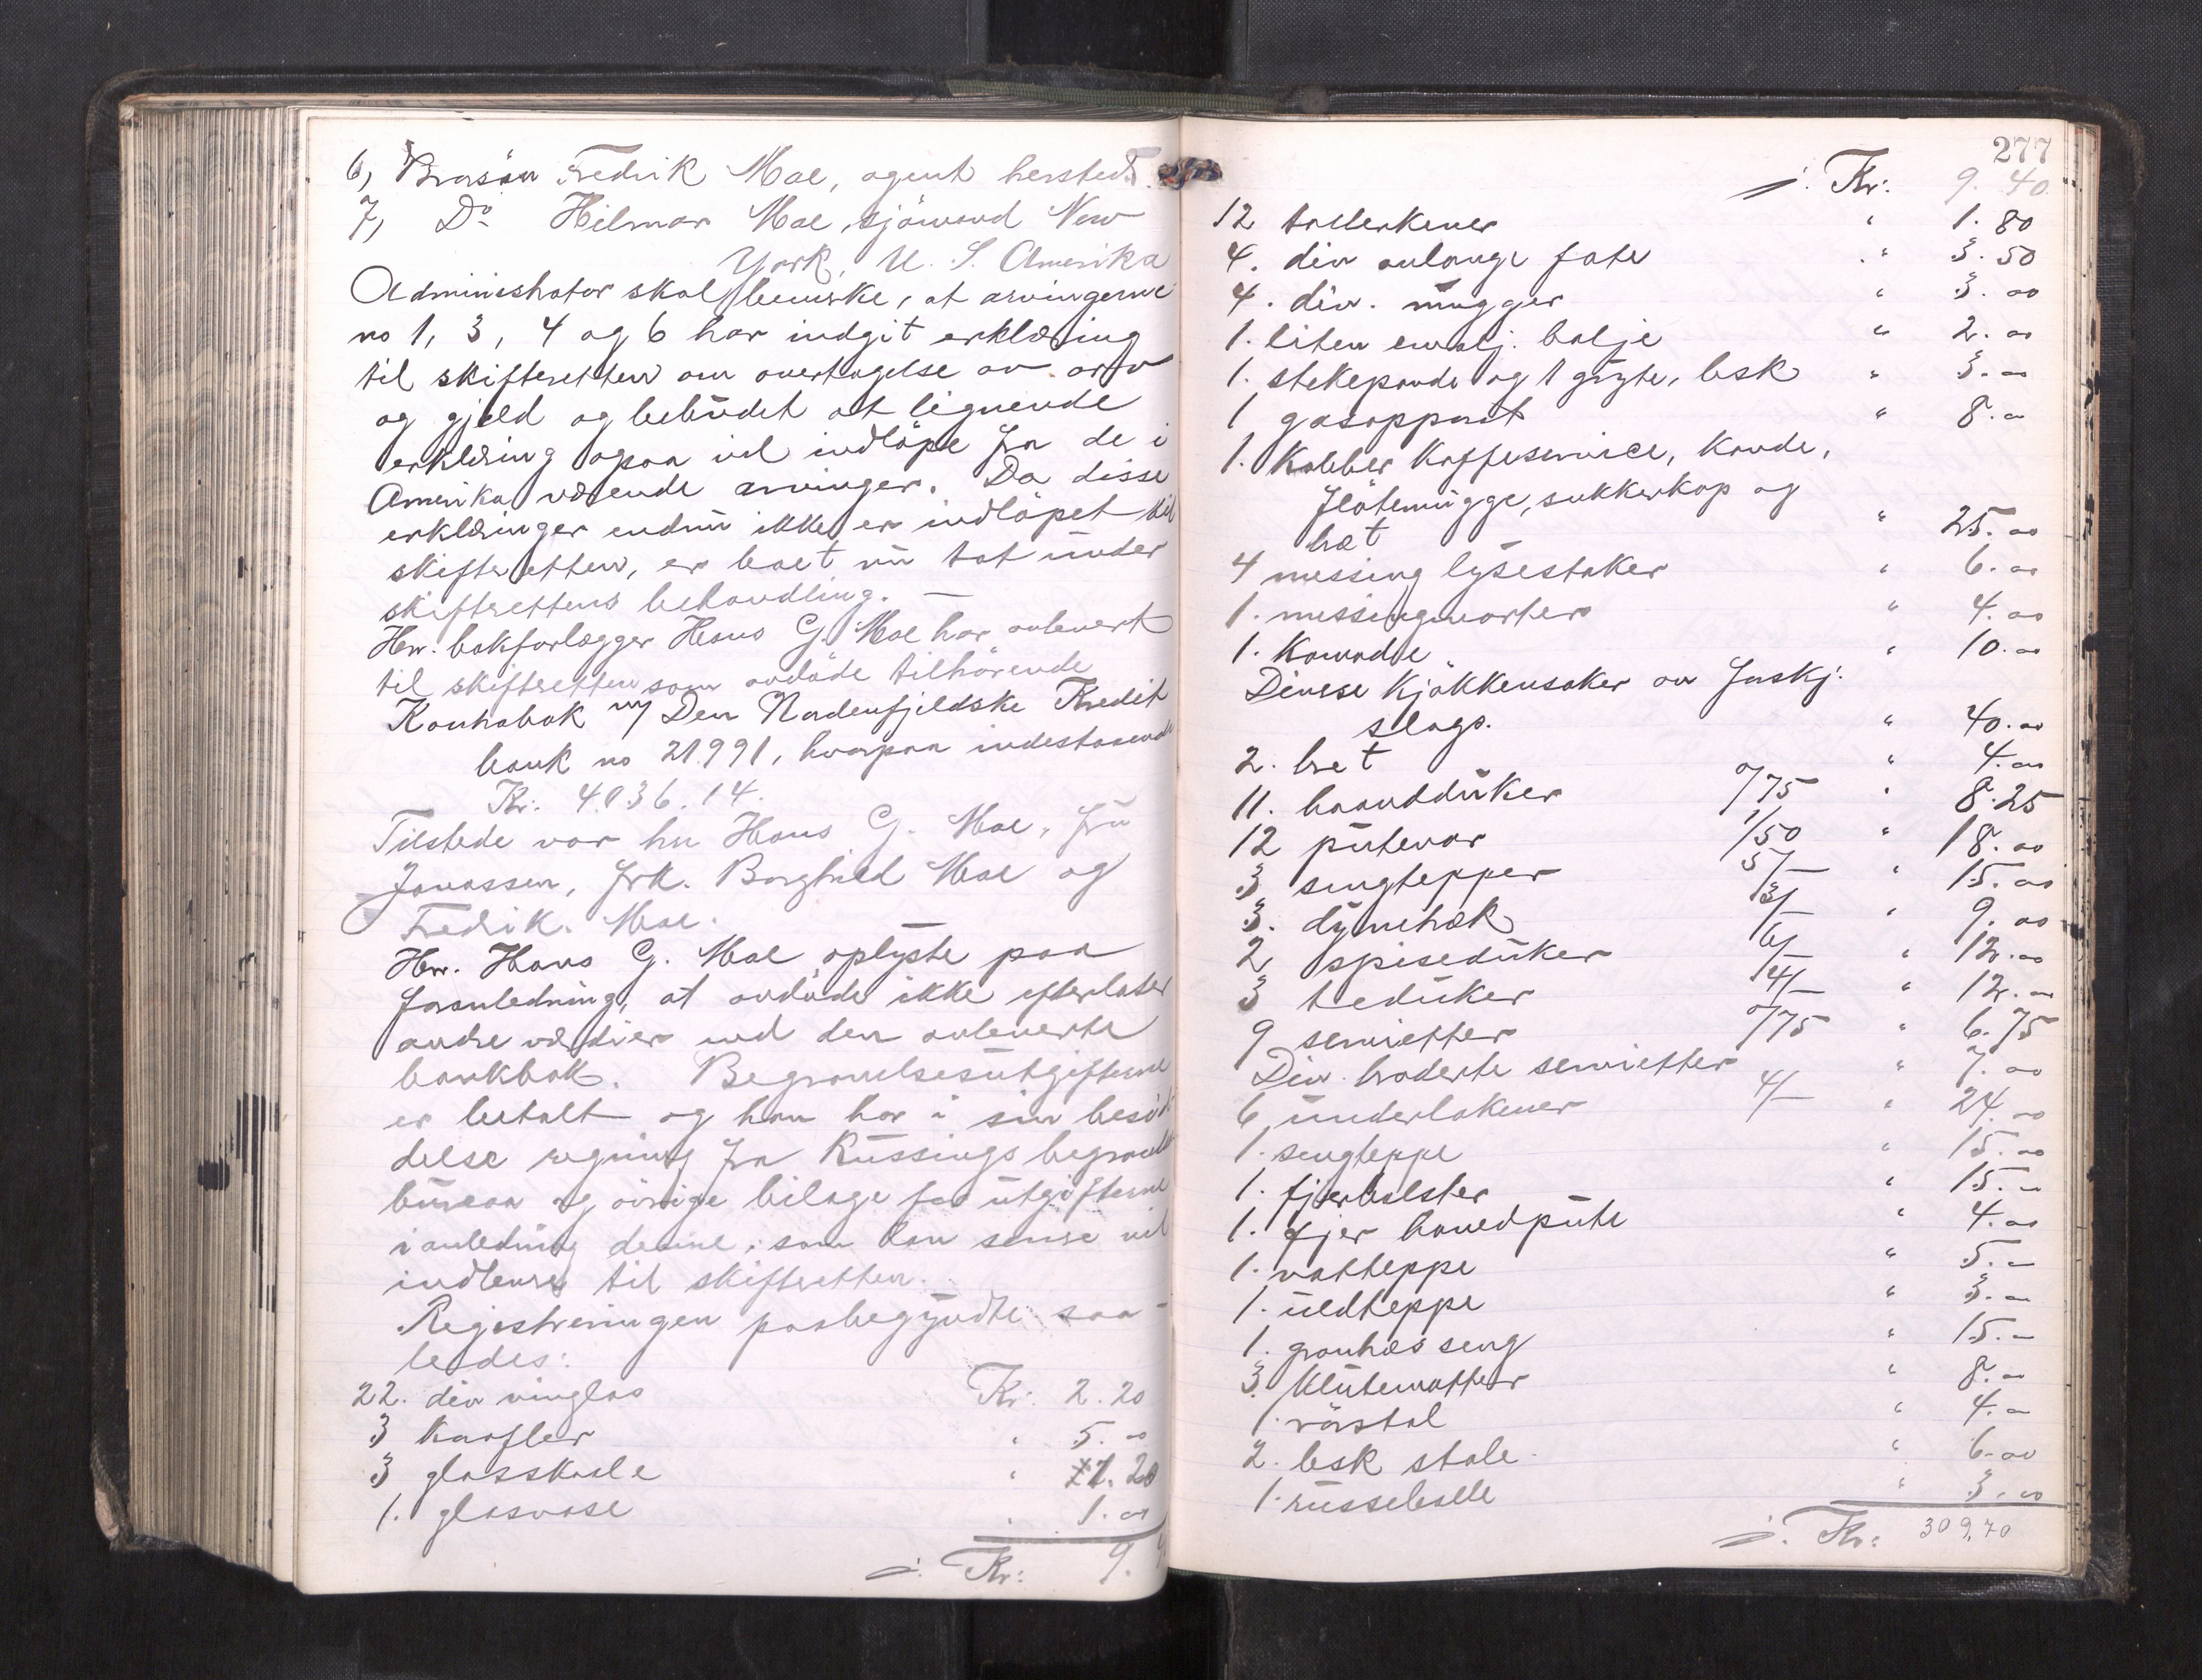 6, Brorsön Fredrik Moe, agent hersteds.
7, Do Hilmar Moe, sjömand New
York, U. S. Amerika
Administrator skal bemerke, at arvingerne
no 1, 3, 4 og 6 har indgit erklæring
til skifteretten om overtagelse av arv
og gjeld og bebudet at lignende
erklæring ogsaa vil indlöpe fra de i
Amerika værende arvinger. Da disse
erklæringer endnu ikke er indlöpet til
skifteretten, er boet nu tat under
skifterettens behandling. —
Hr. bokforlægger Hans G. Moe har avlevert
til skifteretten som avdöde tilhörende
Kontrabok m/ Den Nordenfjeldske Kredit
bank no 21991, hvorpaa indestaaende
Kr. 4036.14.
Tilstede var hr Hans G. Moe, fru
Jonassen, frk. Borghild Moe og
Fredrik Moe.
Hr. Hans G. Moe oplyste paa
foranledning, at avdöde ikke efterlater
andre værdier end den avleverte
bankbok. Begravelsesutgifterne
er betalt og han har i sin besid-
delse regning fra Russings begravelses
bureau og övrige bilage for utgifterne
i anledning denne, som han senere vil
indlevere til skifteretten.
Registreringen paabegyndte saa-
ledes:
22. div vinglas Kr: 2.20
3 karafler " 5.00
3 glasskaale " 1.20
1. glasvase " 1.00
j. Kr: 9.
277
j. Kr: 9.40
12 tallerkener " 1.80
4. div avlange fate " 3.50
4. div. mugger " 3.00
1. liten emalj. balje " 2.00
1. stekepande og 1 gryte, besk " 3.00
1 gasapparat " 8.00
1. Kobber kaffeservice, kande,
flötemugge, sukkerkop og
bret " 25.00
4 messing lysestaker " 6.00
1. messingmorter " 4.00
1. Komode " 10.00
Diverse kjökkensaker av forskj.
slags. " 40.00
2. bret " 4.00
11. haandduker 0/75 " 8.25
12 putevar 1/50 " 18.00
3 sengtepper 5/— " 15.00
3. dynetræk 3/— " 9.00
2 spiseduker 6/— " 12.00
3 teduker 4/— " 12.00
9 servietter 0/75 " 6.75
Div. broderte servietter " 7.00
6 underlakener 4/— " 24.00
1. sengteppe " 15.00
1. fjærbolster " 15.00
1. fjer hovedpute " 4.00
1. vatteppe " 5.00
1. uldteppe " 3.00
1. grantræs seng " 15.00
3. klutematter " 8.00
1. rörstol " 4.00
2. besk stole " 6.00
1. russebalje " 3.00
j. Kr: 309,70